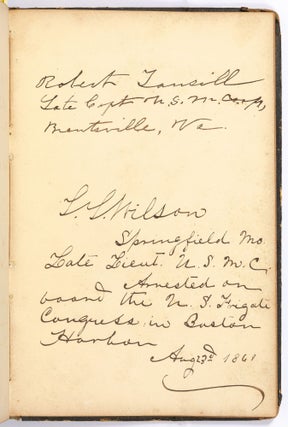 Robert Tansill
Late Capt U.S.M. Corps,
Brentsville, Va.
T. S. Wilson
Springfield Mo.
Late Lieut. U.S.M.C.
Arrested on
board the U.S. Frigate
Congress in Boston
Harbor
Aug 23d 1861